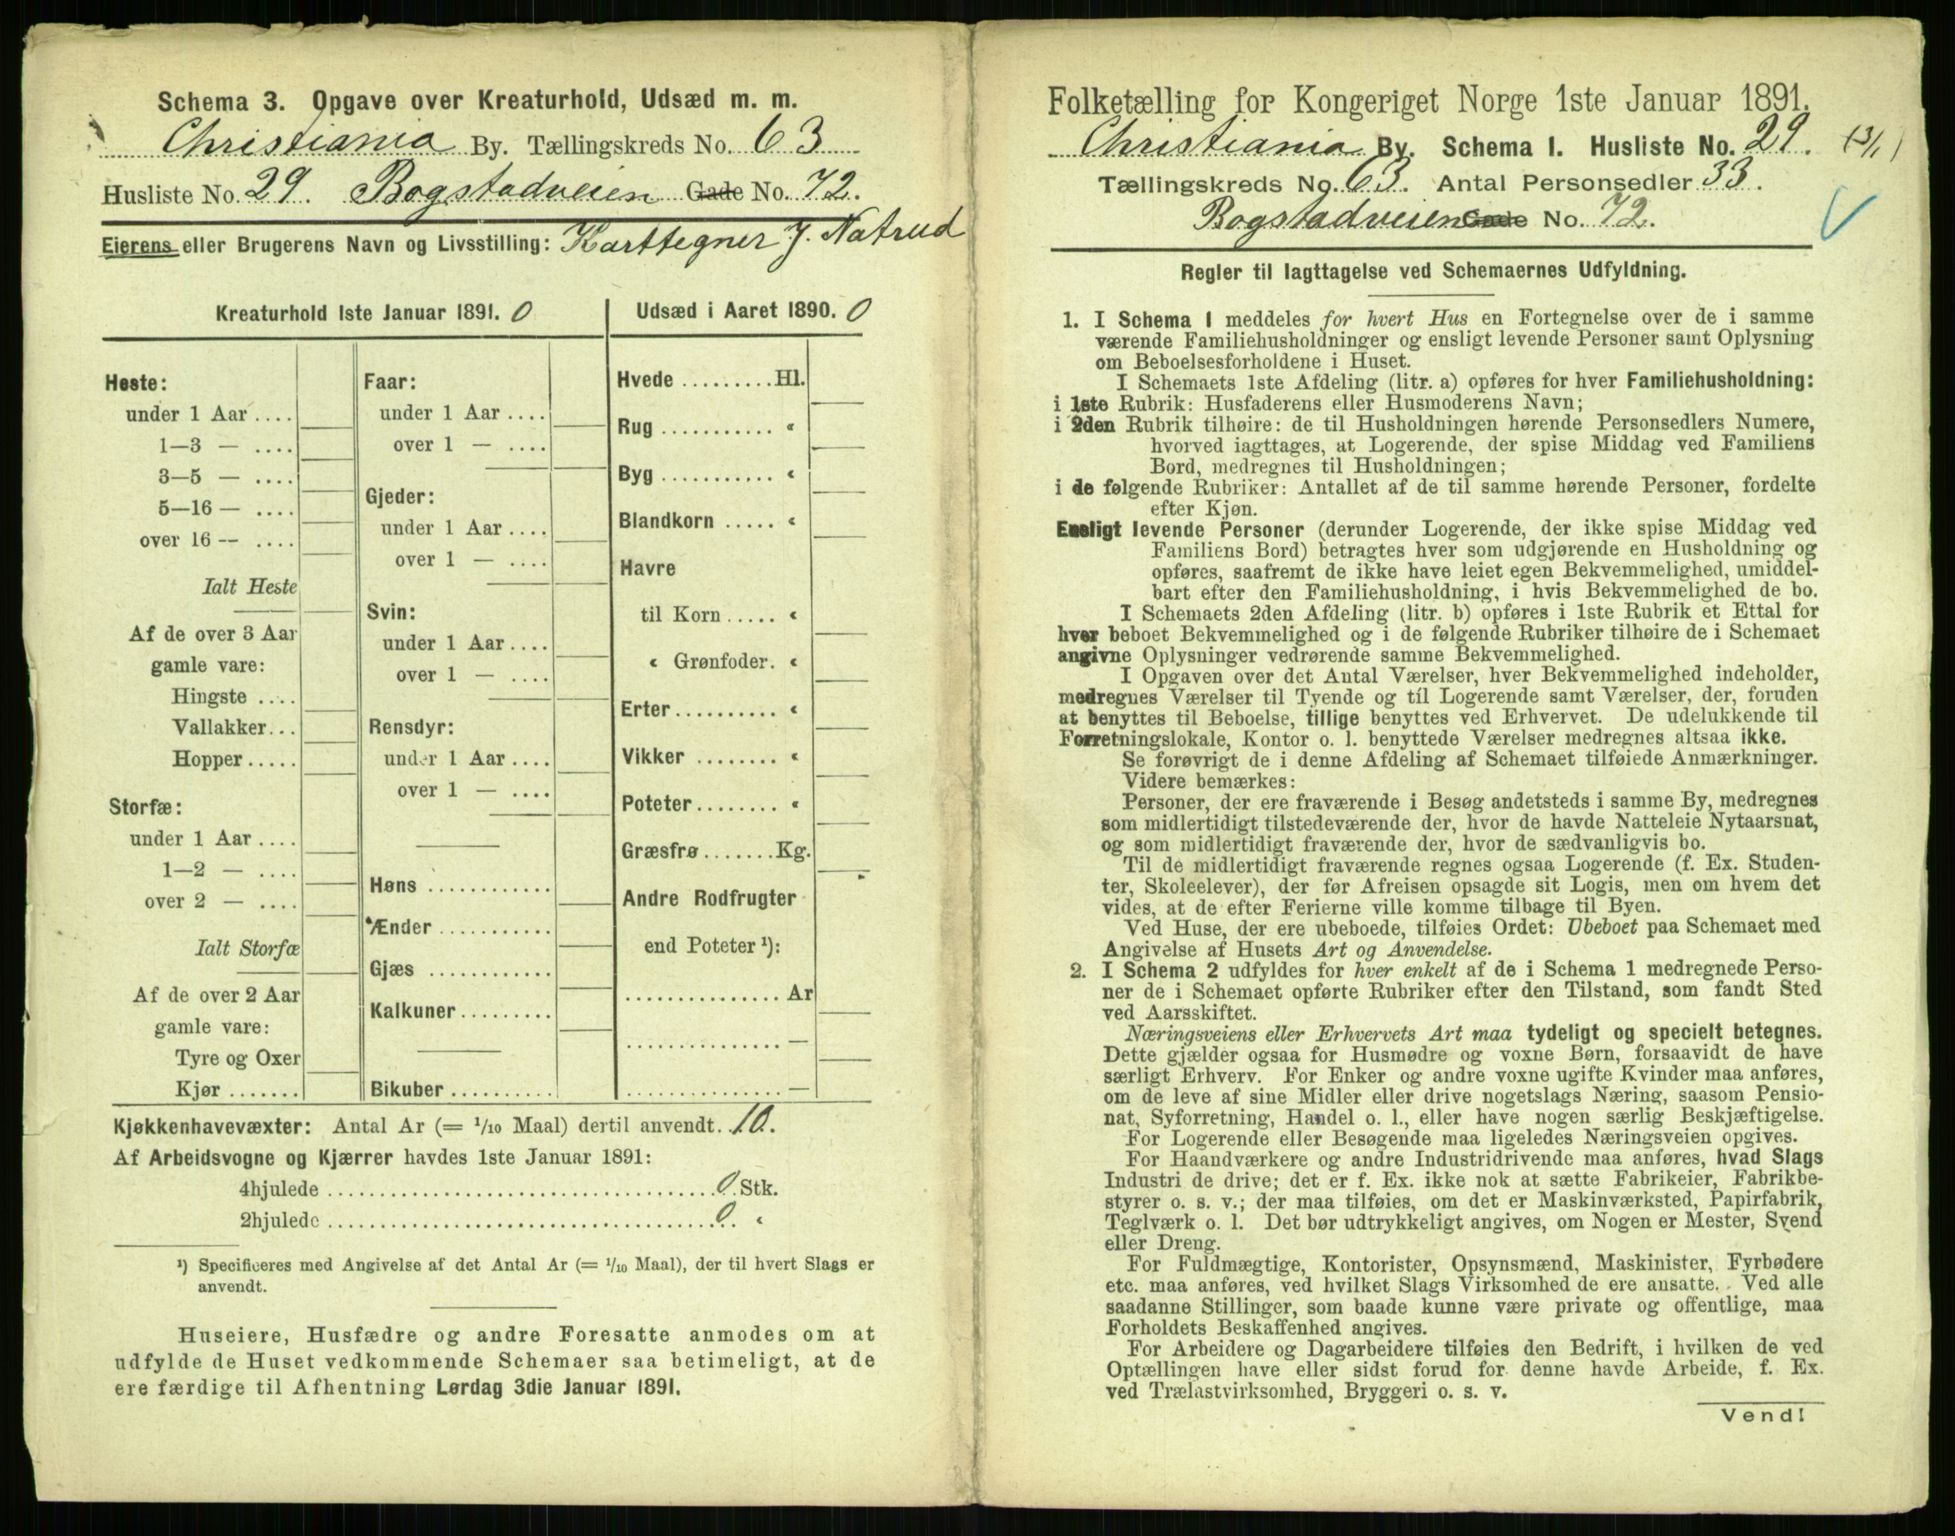 Schema 3. Opgave over Kreaturhold, Udsæd m. m.
Christiania By. Tællingskreds No. 63
Husliste No. 29. Bogstadveien Gade No. 72.
Eierens eller Brugerens Navn og Livsstilling: Karttegner J. Natrud
Kreaturhold 1ste Januar 1891. 0
Heste:
under 1 Aar ....
1—3 — ....
3—5 — ....
5—16 — ....
over 16 — ....
Ialt Heste
Af de over 3 Aar
gamle vare:
Hingste ....
Vallakker...
Hopper .....
Storfæ:
under 1 Aar ....
1—2 — ....
over 2 — ....
Ialt Storfæ
Af de over 2 Aar
gamle vare:
Tyre og Oxer
Kjør .......
Faar:
under 1 Aar ....
over 1 — ....
Gjeder:
under 1 Aar ....
over 1 — ....
Svin:
under 1 Aar ....
over 1 — ....
Rensdyr:
under 1 Aar ....
over 1 — ....
Høns ............
Ænder ...........
Gjæs ............
Kalkuner.........
Bikuber ..........
Udsæd i Aaret 1890. 0
Hvede .........Hl.
Rug ........... «
Byg ........... «
Blandkorn ..... «
Havre
til Korn ..... «
« Grønfoder. «
Erter.......... «
Vikker ........ «
Poteter........ «
Græsfrø.......Kg.
Andre Rodfrugter
end Poteter ¹):
............... Ar
............... —
............... —
Kjøkkenhavevæxter: Antal Ar (= 1/10 Maal) dertil anvendt. 10.
Af Arbeidsvogne og Kjærrer havdes 1ste Januar 1891:
4hjulede ..................................... 0 Stk.
2hjulede ..................................... 0 «
¹) Specificeres med Angivelse af det Antal Ar (= 1/10 Maal), der til hvert Slags er
anvendt.
Huseiere, Husfædre og andre Foresatte anmodes om at
udfylde de Huset vedkommende Schemaer saa betimeligt, at de
ere færdige til Afhentning Lørdag 3die Januar 1891.
Folketælling for Kongeriget Norge 1ste Januar 1891.
Christiania By. Schema I. Husliste No. 29. (3/1)
Tællingskreds No. 63. Antal Personsedler 33.
Bogstadveien Gade No. 72.
Regler til Iagttagelse ved Schemaernes Udfyldning.
1. I Schema 1 meddeles for hvert Hus en Fortegnelse over de i samme
værende Familiehusholdninger og ensligt levende Personer samt Oplysning
om Beboelsesforholdene i Huset.
I Schemaets 1ste Afdeling (litr. a) opføres for hver Familiehusholdning:
i 1ste Rubrik: Husfaderens eller Husmoderens Navn;
i 2den Rubrik tilhøire: de til Husholdningen hørende Personsedlers Numere,
hvorved iagttages, at Logerende, der spise Middag ved Familiens
Bord, medregnes til Husholdningen;
i de følgende Rubriker: Antallet af de til samme hørende Personer, fordelte
efter Kjøn.
Ensligt levende Personer (derunder Logerende, der ikke spise Middag ved
Familiens Bord) betragtes hver som udgjørende en Husholdning og
opføres, saafremt de ikke have leiet egen Bekvemmelighed, umiddel-
bart efter den Familiehusholdning, i hvis Bekvemmelighed de bo.
I Schemaets 2den Afdeling (litr. b) opføres i 1ste Rubrik et Ettal for
hver beboet Bekvemmelighed og i de følgende Rubriker tilhøire de i Schemaet
angivne Oplysninger vedrørende samme Bekvemmelighed.
I Opgaven over det Antal Værelser, hver Bekvemmelighed indeholder,
medregnes Værelser til Tyende og til Logerende samt Værelser, der, foruden
at benyttes til Beboelse, tillige benyttes ved Erhvervet. De udelukkende til
Forretningslokale, Kontor o. l. benyttede Værelser medregnes altsaa ikke.
Se forøvrigt de i denne Afdeling af Schemaet tilføiede Anmærkninger.
Videre bemærkes:
Personer, der ere fraværende i Besøg andetsteds i samme By, medregnes
som midlertidigt tilstedeværende der, hvor de havde Natteleie Nytaarsnat,
og som midlertidigt fraværende der, hvor de sædvanligvis bo.
Til de midlertidigt fraværende regnes ogsaa Logerende (f. Ex. Studen-
ter, Skoleelever), der før Afreisen opsagde sit Logis, men om hvem det
vides, at de efter Ferierne ville komme tilbage til Byen.
Ved Huse, der ere ubeboede, tilføies Ordet: Ubeboet paa Schemaet med
Angivelse af Husets Art og Anvendelse.
2. I Schema 2 udfyldes for hver enkelt af de i Schema 1 medregnede Perso-
ner de i Schemaet opførte Rubriker efter den Tilstand, som fandt Sted
ved Aarsskiftet.
Næringsveiens eller Erhvervets Art maa tydeligt og specielt betegnes.
Dette gjælder ogsaa for Husmødre og voxne Børn, forsaavidt de have
særligt Erhverv. For Enker og andre voxne ugifte Kvinder maa anføres,
om de leve af sine Midler eller drive nogetslags Næring, saasom Pensio-
nat, Syforretning, Handel o. l., eller have nogen særlig Beskjæftigelse.
For Logerende eller Besøgende maa ligeledes Næringsveien opgives.
For Haandværkere og andre Industridrivende maa anføres, hvad Slags
Industri de drive; det er f. Ex. ikke nok at sætte Fabrikeier, Fabrikbe-
styrer o. s. v.; der maa tilføies, om det er Maskinværksted, Papirfabrik,
Teglværk o. l. Det bør udtrykkeligt angives, om Nogen er Mester, Svend
eller Dreng.
For Fuldmægtige, Kontorister, Opsynsmænd, Maskinister, Fyrbødere
etc. maa anføres, ved hvilket Slags Virksomhed de ere ansatte. Ved alle
saadanne Stillinger, som baade kunne være private og offentlige, maa
Forholdets Beskaffenhed angives.
For Arbeidere og Dagarbeidere tilføies den Bedrift, i hvilken de ved
Optællingen have eller sidst forud for denne havde Arbeide, f. Ex.
ved Trælastvirksomhed, Bryggeri o. s. v.
Vend!